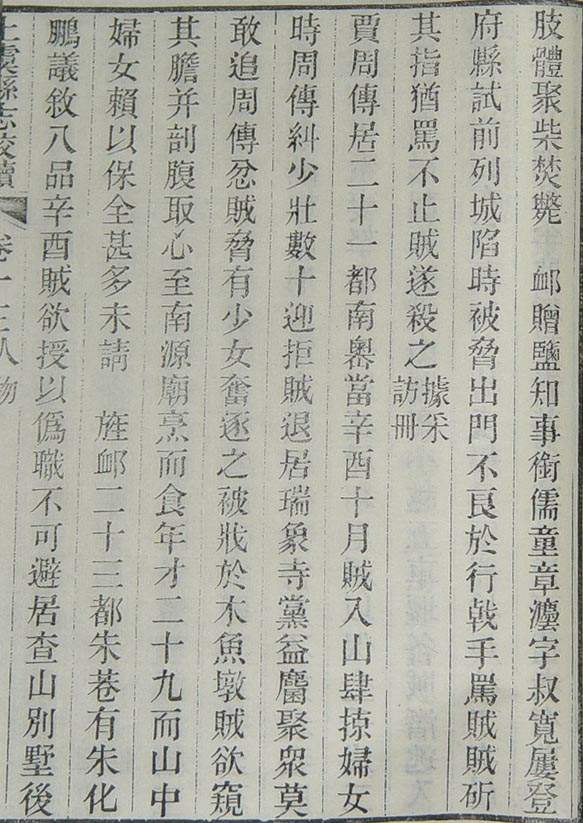 肢體聚柴焚斃　卹贈鹽知事銜儒童章灋字叔寬屢登
府縣試前列城陷時被脅出門不良於行戟手罵賊賊斫
其指猶罵不止賊遂殺之據采訪冊
賈周傳居二十一都南嶴當辛酉十月賊入山肆掠婦女
時周傳糾少壯數十迎拒賊退居瑞象寺黨益麕聚衆莫
敢追周傳忿賊脅有少女奮逐之被戕於木魚墩賊欲窺
其膽并剖腹取心至南源廟烹而食年才二十九而山中
婦女賴以保全甚多未請　旌卹二十三都朱巷有朱化
鵬議敘八品辛酉賊欲授以僞職不可避居查山別墅後
上虞縣志校續　卷十三　人物